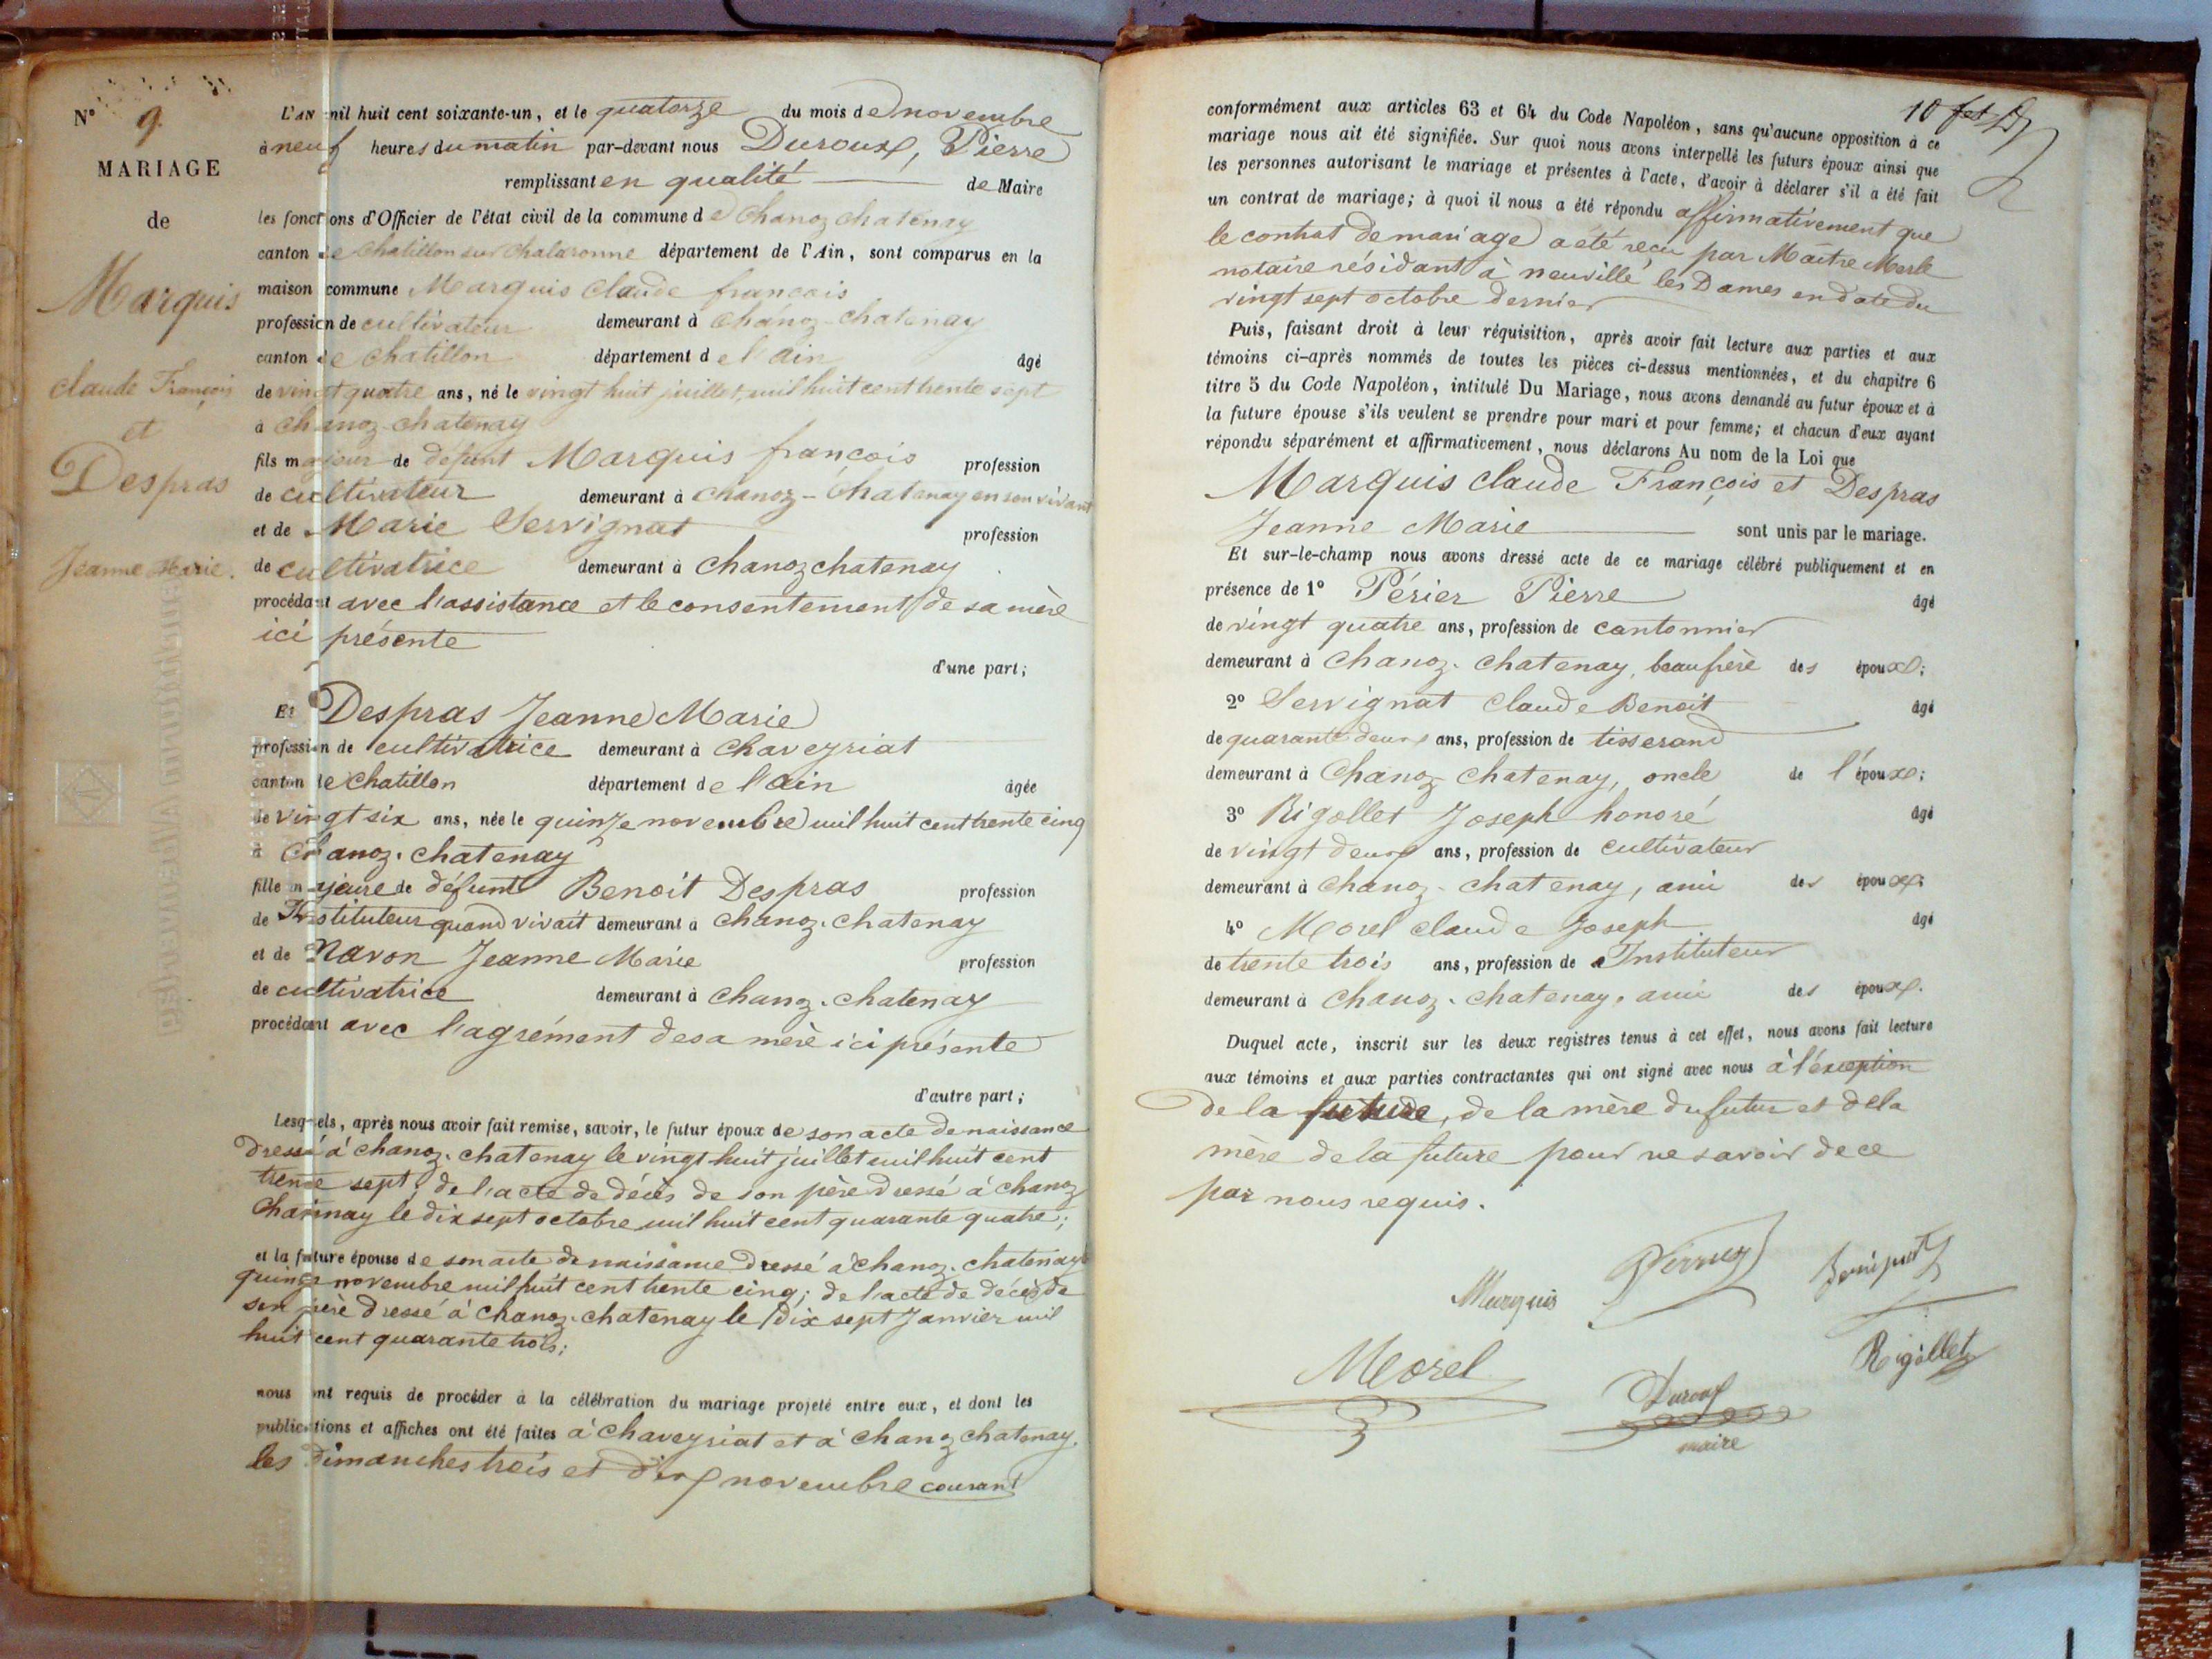 N° 9.
MARIAGE
de
Marquis
Claude François
et
Despras
Jeanne Marie.
L'AN mil huit cent soixante-un, et le quatorze du mois de novembre
à neuf heures du matin par-devant nous Duroux, Pierre
remplissant en qualité de Maire
les fonctions d'Officier de l'état civil de la commune de Chanoz chatenay
canton de Chatillon sur Chalaronne département de l'Ain, sont comparus en la
maison commune Marquis Claude françois
profession de cultivateur demeurant à Chanoz-chatenay
canton de Chatillon département de l'ain âgé
de vingt quatre ans, né le vingt huit juillet mil huit cent trente sept
à Chanoz-chatenay
fils majeur de défunt Marquis françois profession
de cultivateur demeurant à Chanoz-Chatenay en son vivant
et de Marie Servignat profession
de cultivatrice demeurant à Chanoz chatenay
procédant avec l'assistance et le consentement de sa mère
ici présente
d'une part;
Et Despras Jeanne Marie
profession de cultivatrice demeurant à Chaveyriat
canton de Chatillon département de l'ain âgée
de vingt six ans, née le quinze novembre mil huit cent trente cinq
à Chanoz-chatenay
fille majeure de défunt Benoit Despras profession
de Instituteur quand vivait demeurant à Chanoz-chatenay
et de Navon Jeanne Marie profession
de cultivatrice demeurant à Chanoz-chatenay
procédant avec l'agrément de sa mère ici présente
d'autre part;
Lesquels, après nous avoir fait remise, savoir, le futur époux de son acte de naissance
dressé à chanoz-chatenay le vingt huit juillet mil huit cent
trente sept, de l'acte de décès de son père dressé à Chanoz
le dix sept octobre mil huit cent quarante quatre;
et la future épouse de son acte de naissance dressé à Chanoz-chatenay
quinze novembre mil huit cent trente cinq; de l'acte de décès de
son père dressé à Chanoz-chatenay le dix sept Janvier mil
huit cent quarante trois;
nous ont requis de procéder à la célébration du mariage projeté entre eux, et dont les
publications et affiches ont été faites à Chaveyriat et à Chanoz chatenay
les dimanches trois et dix novembre courant
10
conformément aux articles 63 et 64 du Code Napoléon, sans qu'aucune opposition à ce
mariage nous ait été signifiée. Sur quoi nous avons interpellé les futurs époux ainsi que
les personnes autorisant le mariage et présentes à l'acte, d'avoir à déclarer s'il a été fait
un contrat de mariage; à quoi il nous a été répondu affirmativement que
le contrat de mariage a été reçu par Maître Merle
notaire résidant à neuville les Dames en date du
vingt sept octobre dernier
Puis, faisant droit à leur réquisition, après avoir fait lecture aux parties et aux
témoins ci-après nommés de toutes les pièces ci-dessus mentionnées, et du chapitre 6
titre 5 du Code Napoléon, intitulé Du Mariage, nous avons demandé au futur époux et à
la future épouse s'ils veulent se prendre pour mari et pour femme; et chacun d'eux ayant
répondu séparément et affirmativement, nous déclarons Au nom de la Loi que
Marquis Claude François et Despras
Jeanne Marie sont unis par le mariage.
Et sur-le-champ nous avons dressé acte de ce mariage célébré publiquement et en
présence de 1° Périer Pierre âgé
de vingt quatre ans, profession de cantonnier
demeurant à Chanoz-chatenay, beaufrère des époux;
2° Servignat Claude Benoit âgé
de quarante deux ans, profession de tisserand
demeurant à Chanoz-chatenay, oncle de l'époux;
3° Rigollet Joseph honoré âgé
de vingt deux ans, profession de cultivateur
demeurant à Chanoz-chatenay, ami des époux;
4° Morel Claude Joseph âgé
de trente trois ans, profession de Instituteur
demeurant à Chanoz-chatenay, ami des époux.
Duquel acte, inscrit sur les deux registres tenus à cet effet, nous avons fait lecture
aux témoins et aux parties contractantes qui ont signé avec nous à l'éxception
de la future, de la mère du futur et de la
mère de la future pour ne savoir de ce
par nous requis.
Marquis
Morel
Duroux
maire
Rigollet